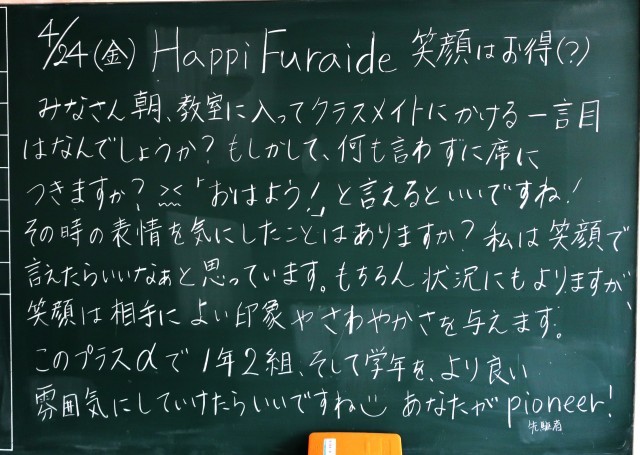 4/24(金) Happi Furaide 笑顔はお得(?)
みなさん朝、教室に入ってクラスメイトにかける一言目
はなんでしょうか?もしかして、何も言わずに席に
つきますか?「おはよう!」と言えるといいですね!
その時の表情を気にしたことはありますか?私は笑顔で
言えたらいいなぁと思っています。もちろん状況にもよりますが、
笑顔は相手によい印象やさわやかさを与えます。
このプラスαで1年2組、そして学年を、より良い
雰囲気にしていけたらいいですね あなたがpioneer!
先駆者